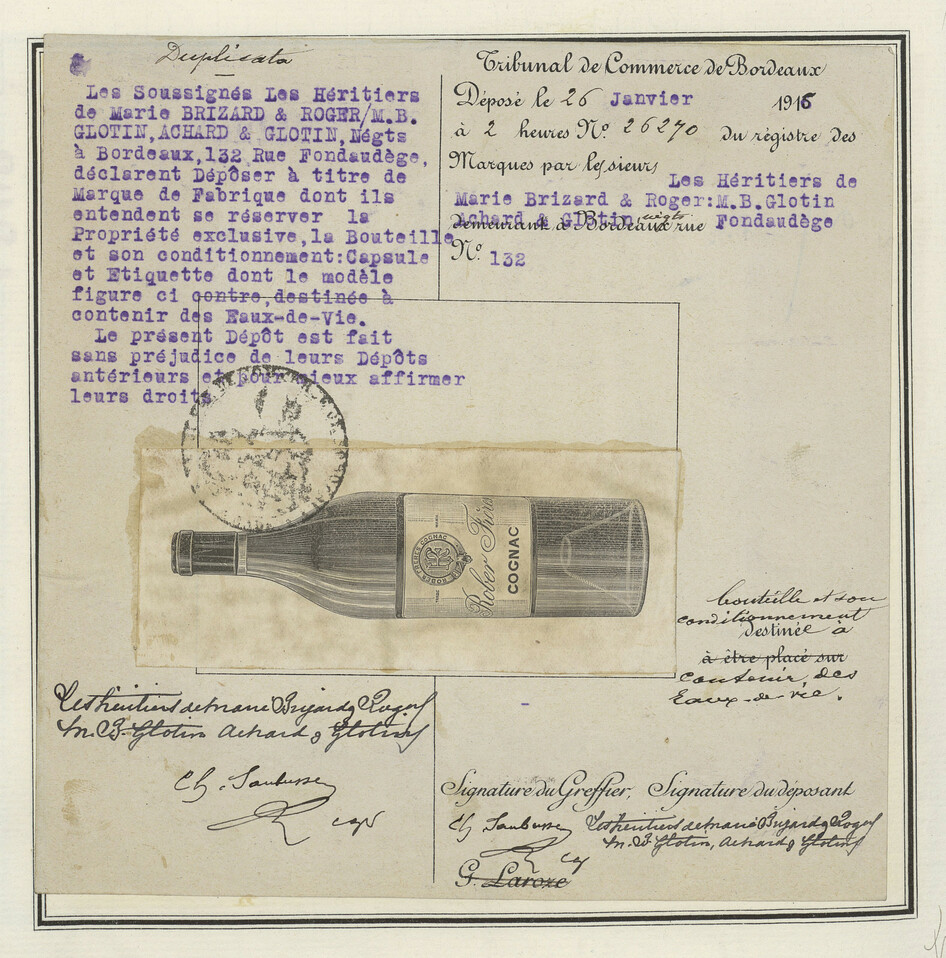 Duplicata
Les Soussignés Les Héritiers
de Marie BRIZARD & ROGER/M.B.
GLOTIN,ACHARD & GLOTIN,Négts
à Bordeaux,132 Rue Fondaudège,
déclarent Dépôser à titre de
Marque de Fabrique dont ils
entendent se réserver la
Propriété exclusive,la Bouteille
et son conditionnement:Capsule
et Etiquette dont le modèle
figure ci contre,destinée à
contenir des Eaux-de-Vie.
Le présent Dépôt est fait
sans préjudice de leurs Dépôts
antérieurs et pour mieux affirmer
leurs droits
Tribunal de Commerce de Bordeaux
Déposé le 26 Janvier 1916
à 2 heures No. 26270 du régistre des
Marques par les sieurs
Les Héritiers de
Marie Brizard & Roger:M.B.Glotin
Achard & Glotin négts
demeurant à Bordeaux rue Fondaudège
No. 132
ROBER FRERES COGNAC
Rober Frères
COGNAC
bouteille et son
conditionnement
destinée à
à être placé sur
contenir des
Eaux-de-vie.
Les héritiers de marie Brizard & Roger
M. B. Glotin Achard & Glotin
Ch. Saubusse
Signature du Greffier, Signature du déposant
Ch. Saubusse Les héritiers de marie Brizard & Roger
M. B. Glotin, Achard & Glotin
G. Laroze